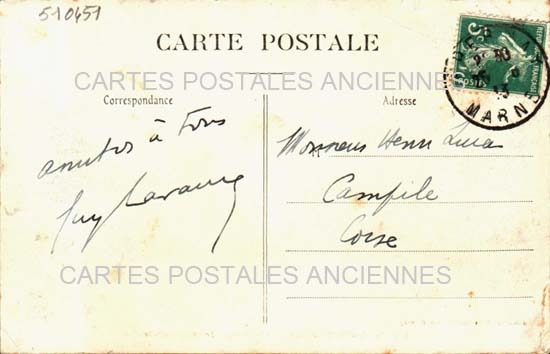 510451
CARTE POSTALE
CARTES POSTALES ANCIENNES
Correspondance
Adresse
amitiés à tous
Guy
Monsieur Henri Luca
Campile
Corse
CARTES POSTALES ANCIENNES
RÉPUBLIQUE FRANÇAISE
5
POSTES
30
13
MARNE